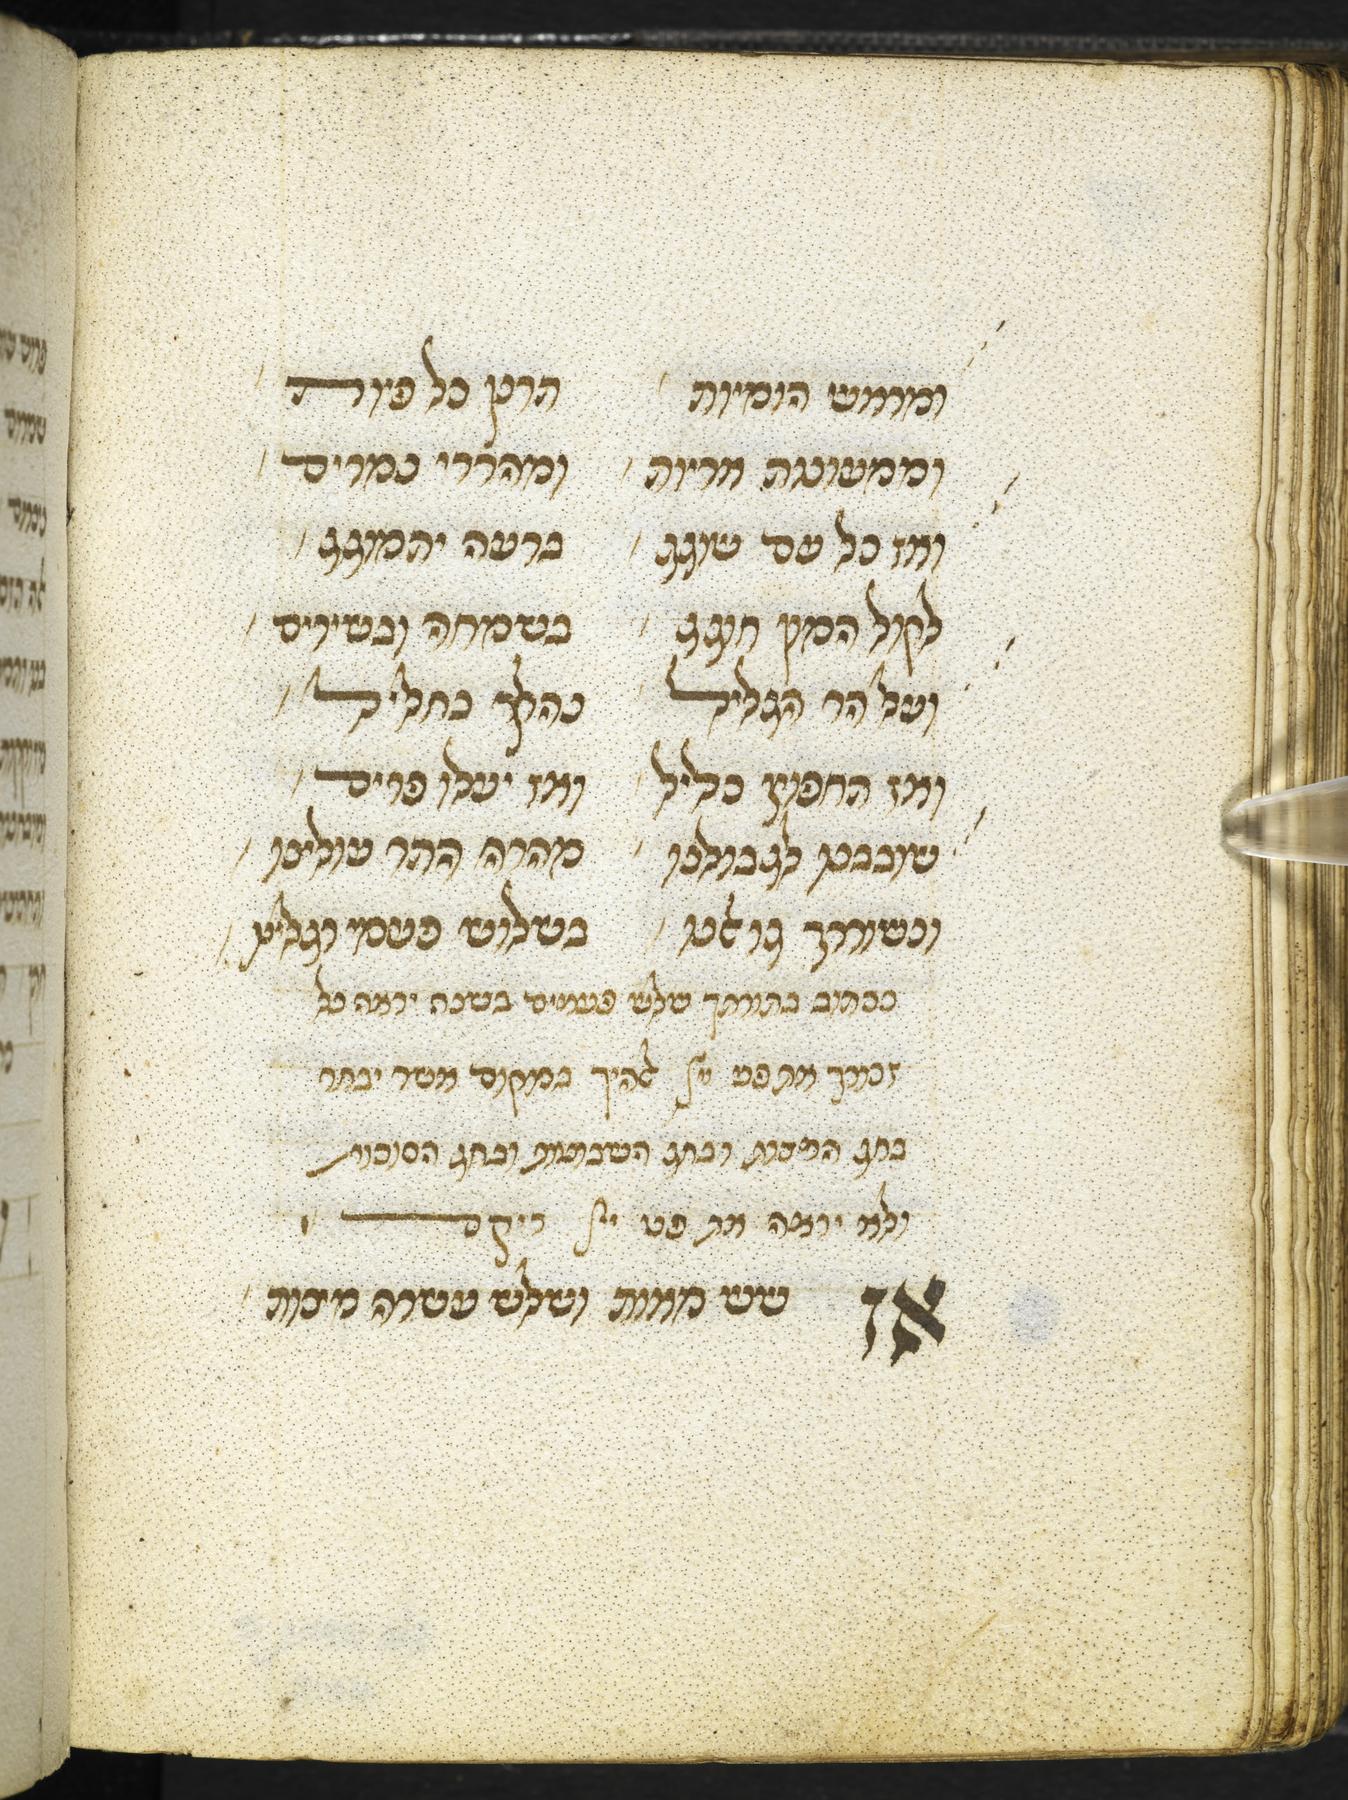 ומרמש הומיות / תרטן כל פיות /
וממעונות אריות / ומהררי נמרים /
ואז כל עם עונג / ברעה יתמוגג /
לקול המון חוגג / בשמחה ובשירים
ועל הר הגליל / כהלך בחליל /
ואז החפץ כליל / ואז יעלו פרים /
שובבנו לגבולנו / מהרה התר עולינו /
וכשוררך גואלנו / בשלוש פעמי רגלינו /
ככתוב בתורתך שלש פעמים בשנה יראה כל
זכורך את פני יי אלהיך במקום אשר יבחר
בחג המצות ובחג השבועות ובחג הסוכות
ולא יראה את פני יי ריקם
אז שש מאות ושלש עשרה מצות /